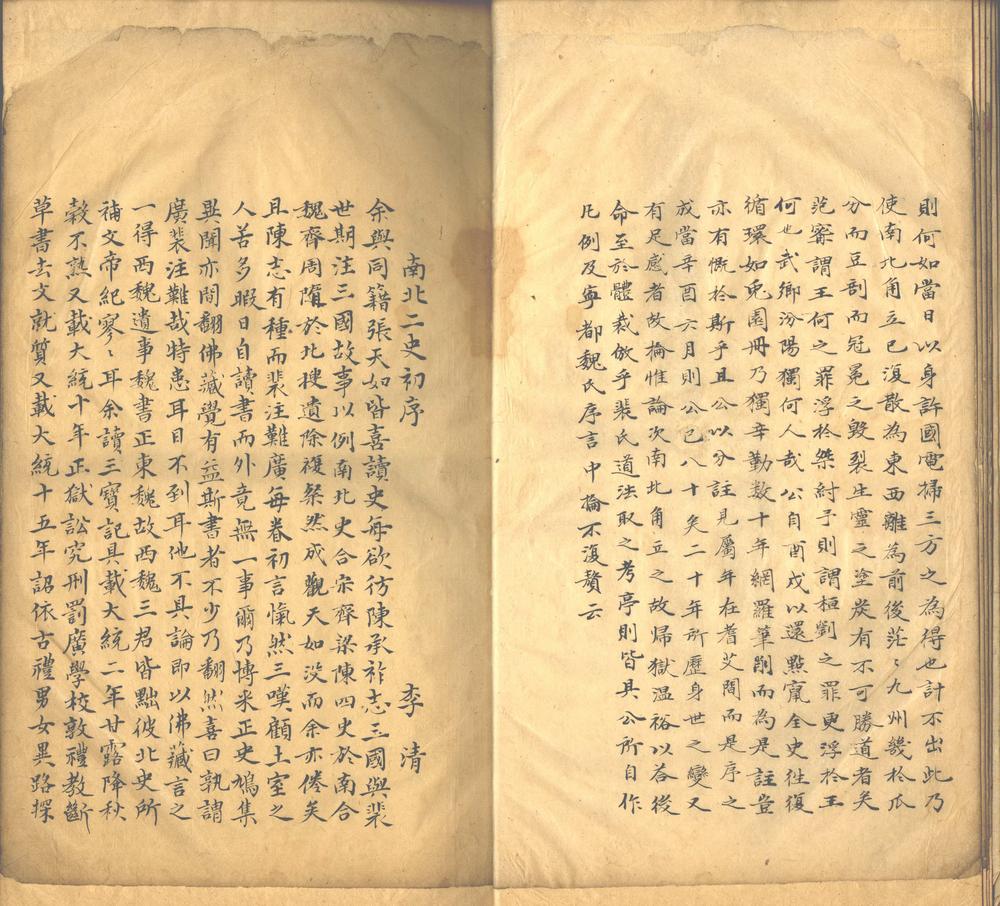 則何如當日以身許國電掃三方之為得也計不出此乃
使南北角立已復散為東西離為前後茫〻九州幾於瓜
分而豆剖而冠冕之毀裂生靈之塗炭有不可勝道者矣
范甯謂王何之罪浮於桀紂予則謂桓劉之罪更浮於王
何也武鄉汾陽獨何人哉公自酉戌以還點竄全史往復
循環如兎園冊乃獨辛勤數十年網羅筆削而為是註豈
亦有慨於斯乎且公以分註見屬年在耆艾間而是序之
成當辛酉六月則公已八十矣二十年所歷身世之變又
有足感者故掄惟論次南北角立之故帰獄溫裕以荅後
命至於體裁倣乎裴氏道法取之考亭則皆具公所自作
凡例及寧都魏氏序言中掄不復贅云
南北二史初序 李清
余與同籍張天如皆喜讀史每欲彷陳承祚志三國與裴
世期注三國故事以例南北史合宋齊梁陳四史於南合
魏齊周隋於北搜遺除複粲然成觀天如沒而余亦倦矣
且陳志有種而裴注難廣每卷初言愾然三嘆顧土室之
人苦多暇日自讀書而外竟無一事爾乃博采正史鳩集
異聞亦間翻佛藏覺有益斯書者不少乃翻然喜曰孰謂
廣裴注難哉特患耳目不到耳他不具論即以佛藏言之
一得西魏遺事魏書正東魏故西魏三君皆黜彼北史所
補文帝紀寥〻耳余讀三寶記具載大統二年甘露降秋
穀不熟又載大統十年正獄訟究刑罰廣學校敦禮教斷
草書去文就質又載大統十五年詔依古禮男女異路採